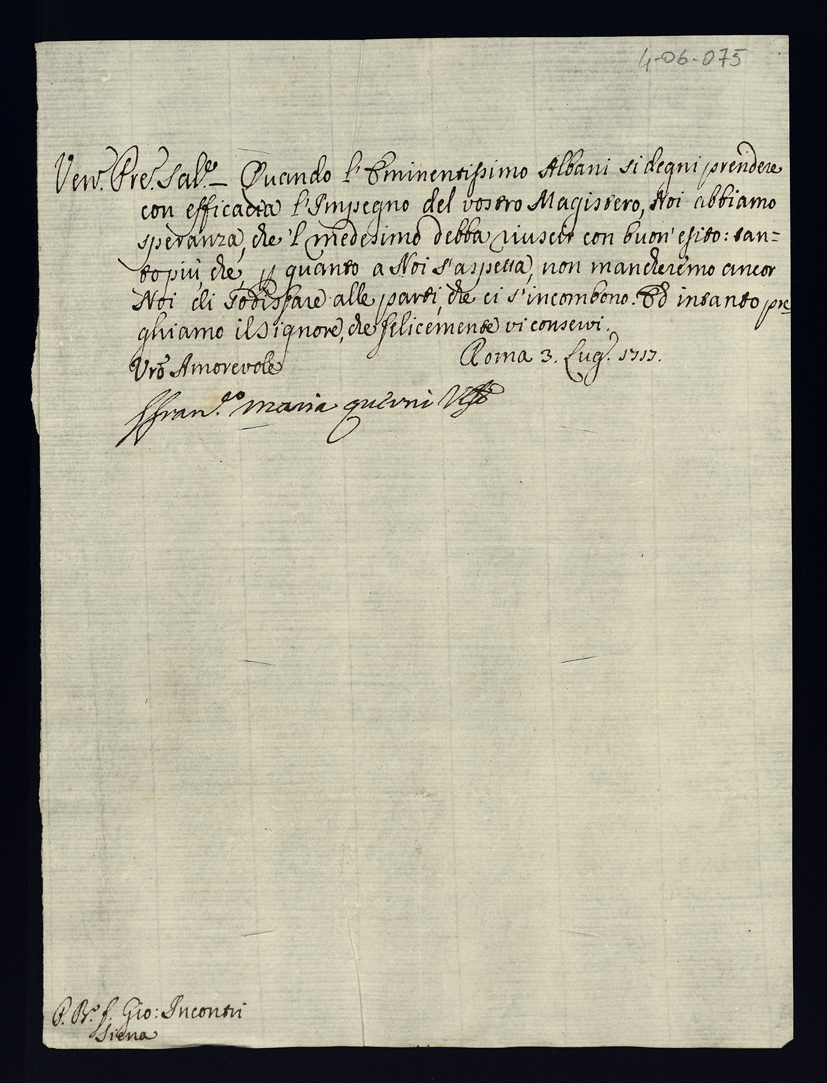 4-06-075
Ven. Pre. Sal.e Quando l'Eminentissimo Albani si degni prendere
con efficacia l'Impegno del vostro Magistero, Noi abbiamo
speranza, che 'l medesimo debba riuscir con buon'esito: tan=
to più, che, quanto a Noi s'aspetta, non mancheremo ancor
Noi di sodisfare alle parti, che ci s'incombono. Ed intanto pre=
ghiamo il Signore, che felicemente vi conservi.
Vro Amorevole
Roma 3. Lug. 1717.
maria
P. Gio: Incontri
Siena